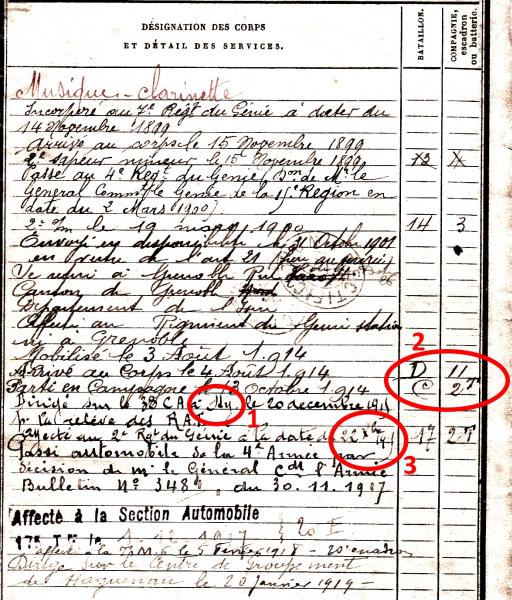 DÉSIGNATION DES CORPS
ET DÉTAIL DES SERVICES.
BATAILLON.
COMPAGNIE,
escadron
ou batterie.
Musique - Clarinette
Incorporé au 7e Regt du Génie à dater du
14 Novembre 1899
Arrivé au corps le 15 Novembre 1899
2e Sapeur mineur le 15 Novembre 1899
Passé au 4e Regt du Génie (Don de Mr le
Général Commdt le Génie de la 15e Région en
date du 2 Mars 1900).
le 19 mars 1900 14 3
Envoyé en disponibilité le 31 Octobre 1901
en vertu de l'art 21
Se retire à Grenoble Rue
Canton de Grenoble
Département de l'Isère
Affecté au Régiment du Génie station
né à Grenoble
Mobilisé le 3 Août 1914
2
Arrivé au Corps le 4 Août 1914 D 11
Parti en Campagne le Octobre 1914 C
Dirigé sur le 38 C.A. le 20 décembre
1
pr la relève des R.A.T.
au 2e Rgt du Génie à la date du 22 17
3
Passé automobile de la 4e Armée par
décision de m. le Général Cdt l'Armée
Bulletin No 3486, du 30.11.1917
Affecté à la Section Automobile
1.12.1917 20 E.
affecté à la T.M. le 5 Février 1918 - 20e escadron
Dirigé sur le Centre de Groupement
de Haguenau le 20 janvier 1919 -